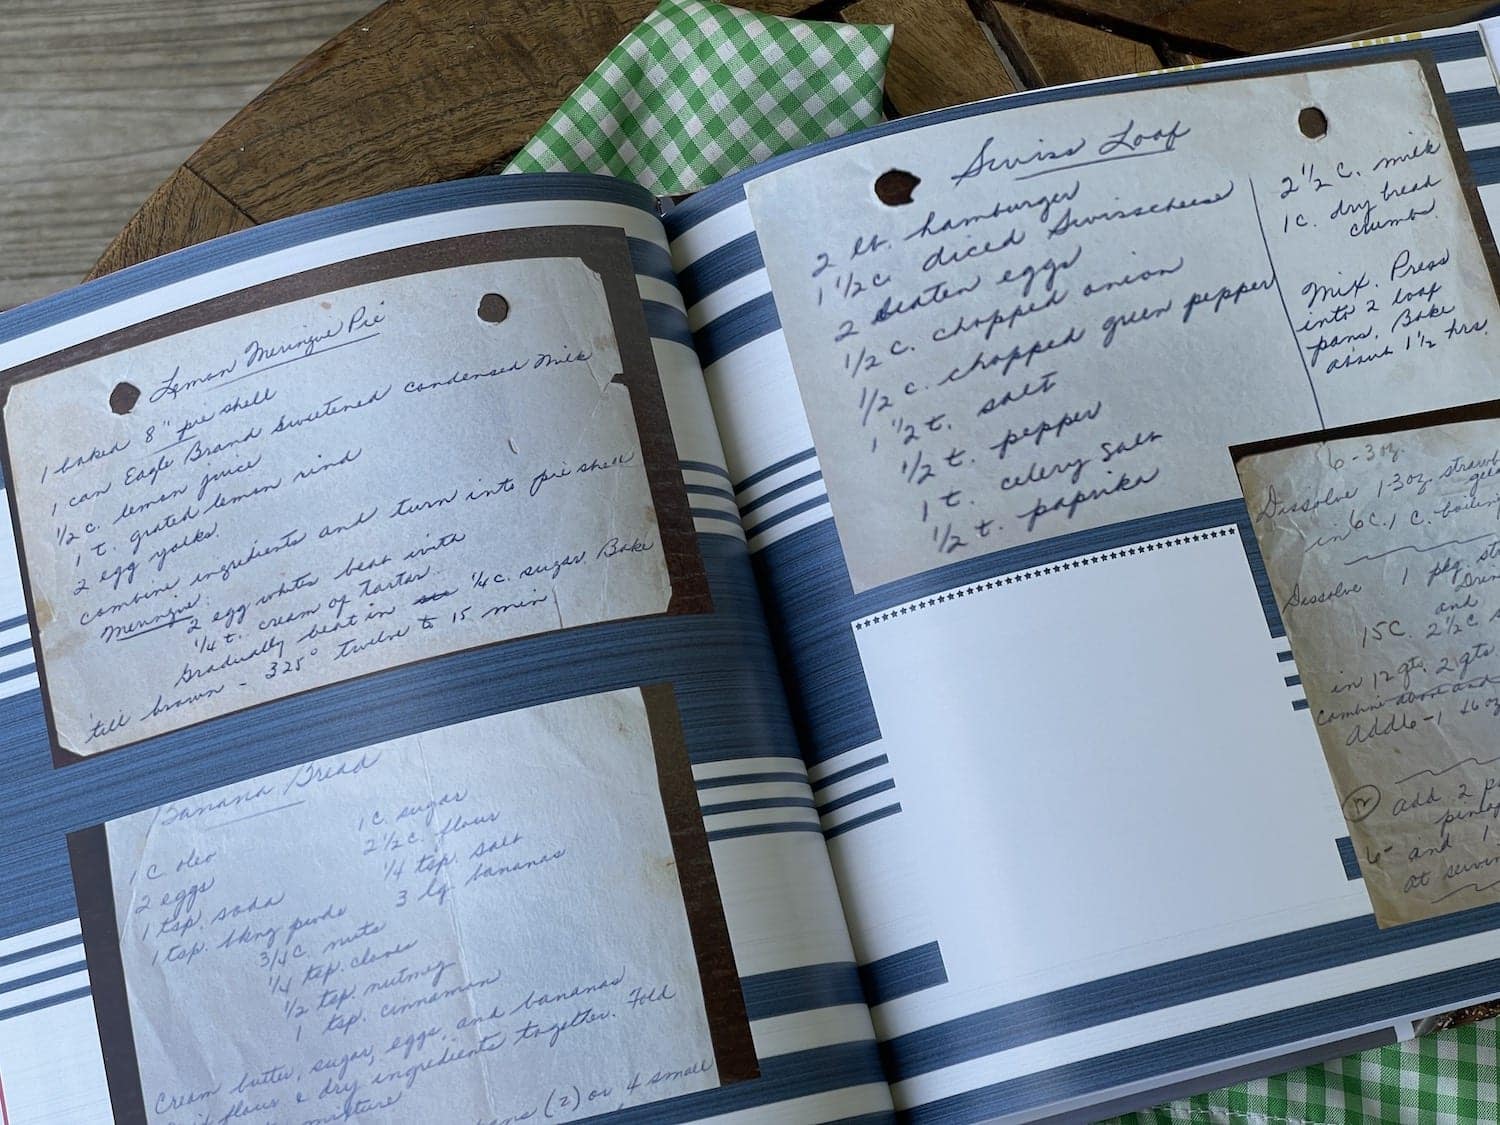 Lemon Meringue Pie
1 baked 8" pie shell
1 can Eagle Brand Sweetened Condensed Milk
1/2 c. lemon juice
1 t. grated lemon rind
2 egg yolks.
combine ingredients and turn into pie shell
Meringue:
2 egg whites beat with
1/4 t. cream of tartar.
Gradually beat in 1/4 c. sugar. Bake
'till brown - 325° twelve to 15 min
Banana Bread
1 C oleo
2 eggs
1 tsp. soda
1 tsp. bkng powde
1 C. sugar
2 1/2 C. flour
1/4 tsp. salt
3 lg bananas
3/4 C. nuts
1/4 tsp. cloves
1/2 tsp. nutmeg
1 tsp. cinnamon
Cream butter, sugar, eggs, and bananas
flour & dry ingredients together. Fold
mixture
(2) or 4 small
Swiss Loaf
2 lb. hamburger
1 1/2 c. diced Swisscheese
2 beaten eggs
1/2 c. chopped onion
1/2 c. chopped green pepper
1 1/2 t. salt
1/2 t. pepper
1 t. celery salt
1/2 t. paprika
2 1/2 C. milk
1 c. dry bread
crumbs.
Mix. Press
into 2 loaf
pans. Bake
about 1 1/2 hrs.
6 - 3 oz.
Dissolve 1-3 oz. strawb
gela
in 6c. 1 C. boilin
Dissolve 1 pkg. st
Drin
and
15 C. 2 1/2 C. s
in 12 qts. 2 qts
Combine above and
add 6-1 46 oz
12 add 2 p
pineap
6- and 1
at servin